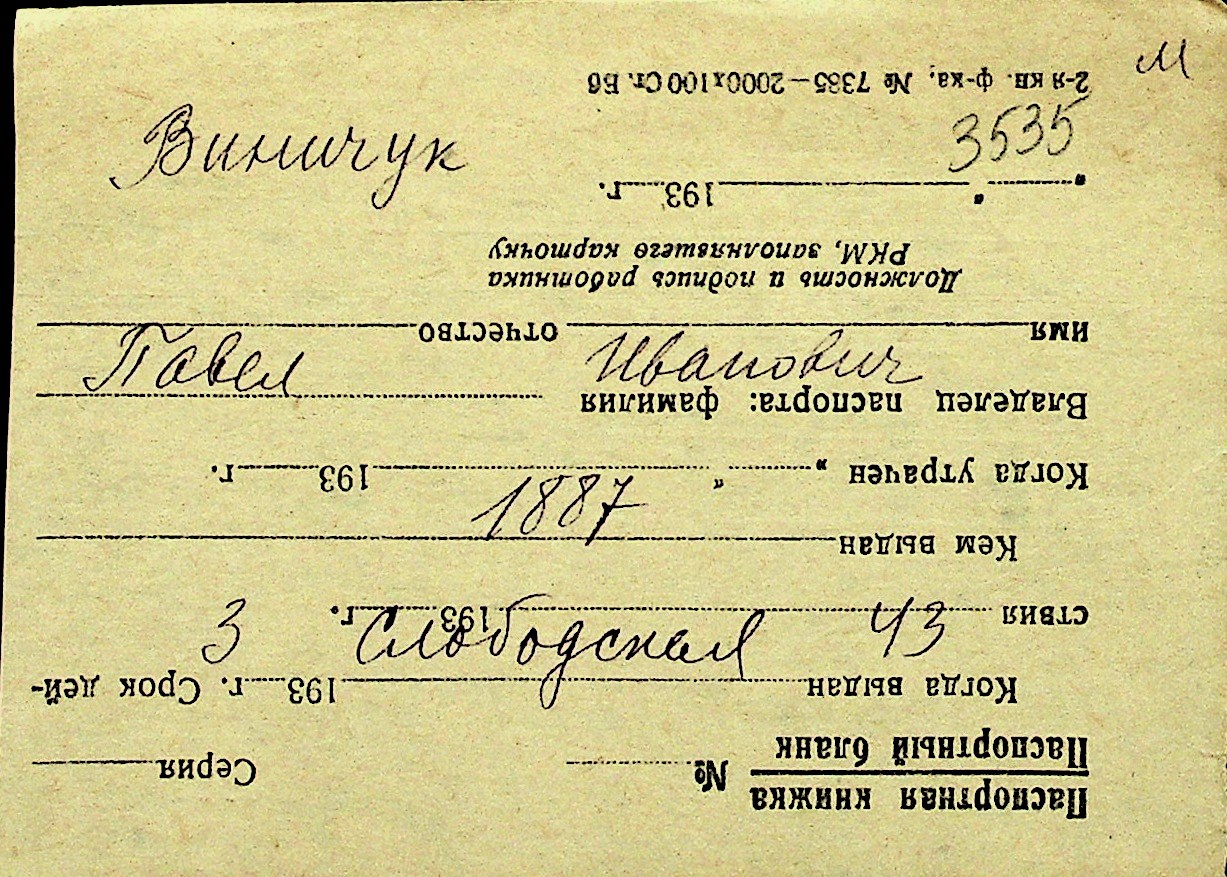 м
Виничук 3535
Павел Иванович
1887
3 Слободская 43
Паспортная книжка
Паспортный бланк № Серия
Когда выдан 193 г. Срок дей-
ствия 193 г.
Кем выдан
Когда утрачен „ “ 193 г.
Владелец паспорта: фамилия
имя отчество
Должность и подпись работника
РКМ, заполнявшего карточку
„ “ 193 г.
2-я кн. ф-ка, № 7385—2000х100 Ст. Вб